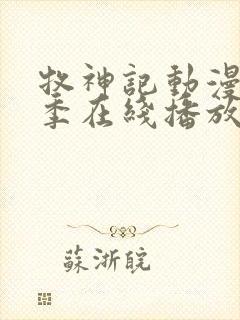 牧神記動漫
季在綫播放
蘇浙皖